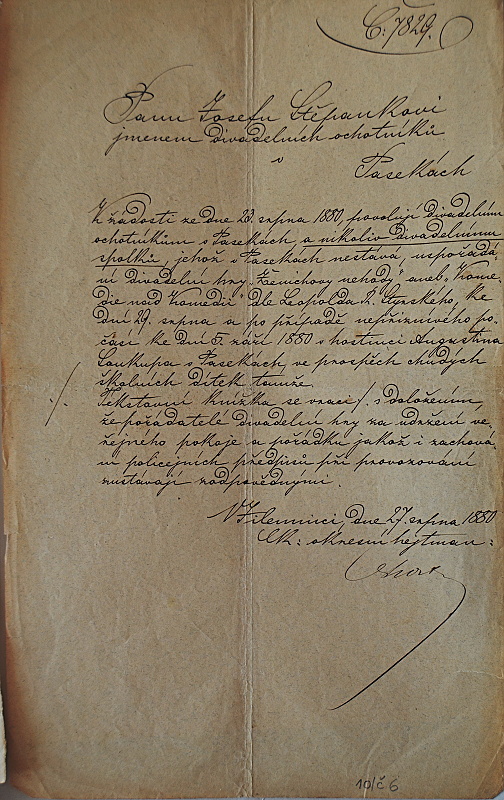 Č: 7829.
Panu Josefu Štěpánkovi
jmenem divadelních ochotníků
v
Pasekách
K žádosti ze dne 23. srpna 1880, povoluji divadelním
ochotníkům v Pasekách, a nikoliv divadelnímu
spolku, jehož v Pasekách nestává, uspořádá-
ní divadelní hry „Ženichovy nehody" aneb „Kome-
die nad Komedii" dle Leopolda R. ke
dni 29. srpna a po případě nepříznivého po-
časí ke dni 5. září 1880 v hostinci Augustina
Soukupa v Pasekách, ve prospěch chudých
školních dítek tamže.
./. Tekstavní knížka se vrací /. s doložením,
že pořádatelé divadelní hry za udržení ve-
řejného pokoje a pořádku jakož i zachová-
ní policejních předpisů při provozování
zůstávají zodpovědnými.
V Jilemnici, dne 27. srpna 1880
Ck: okresní hejtman:
10/č 6